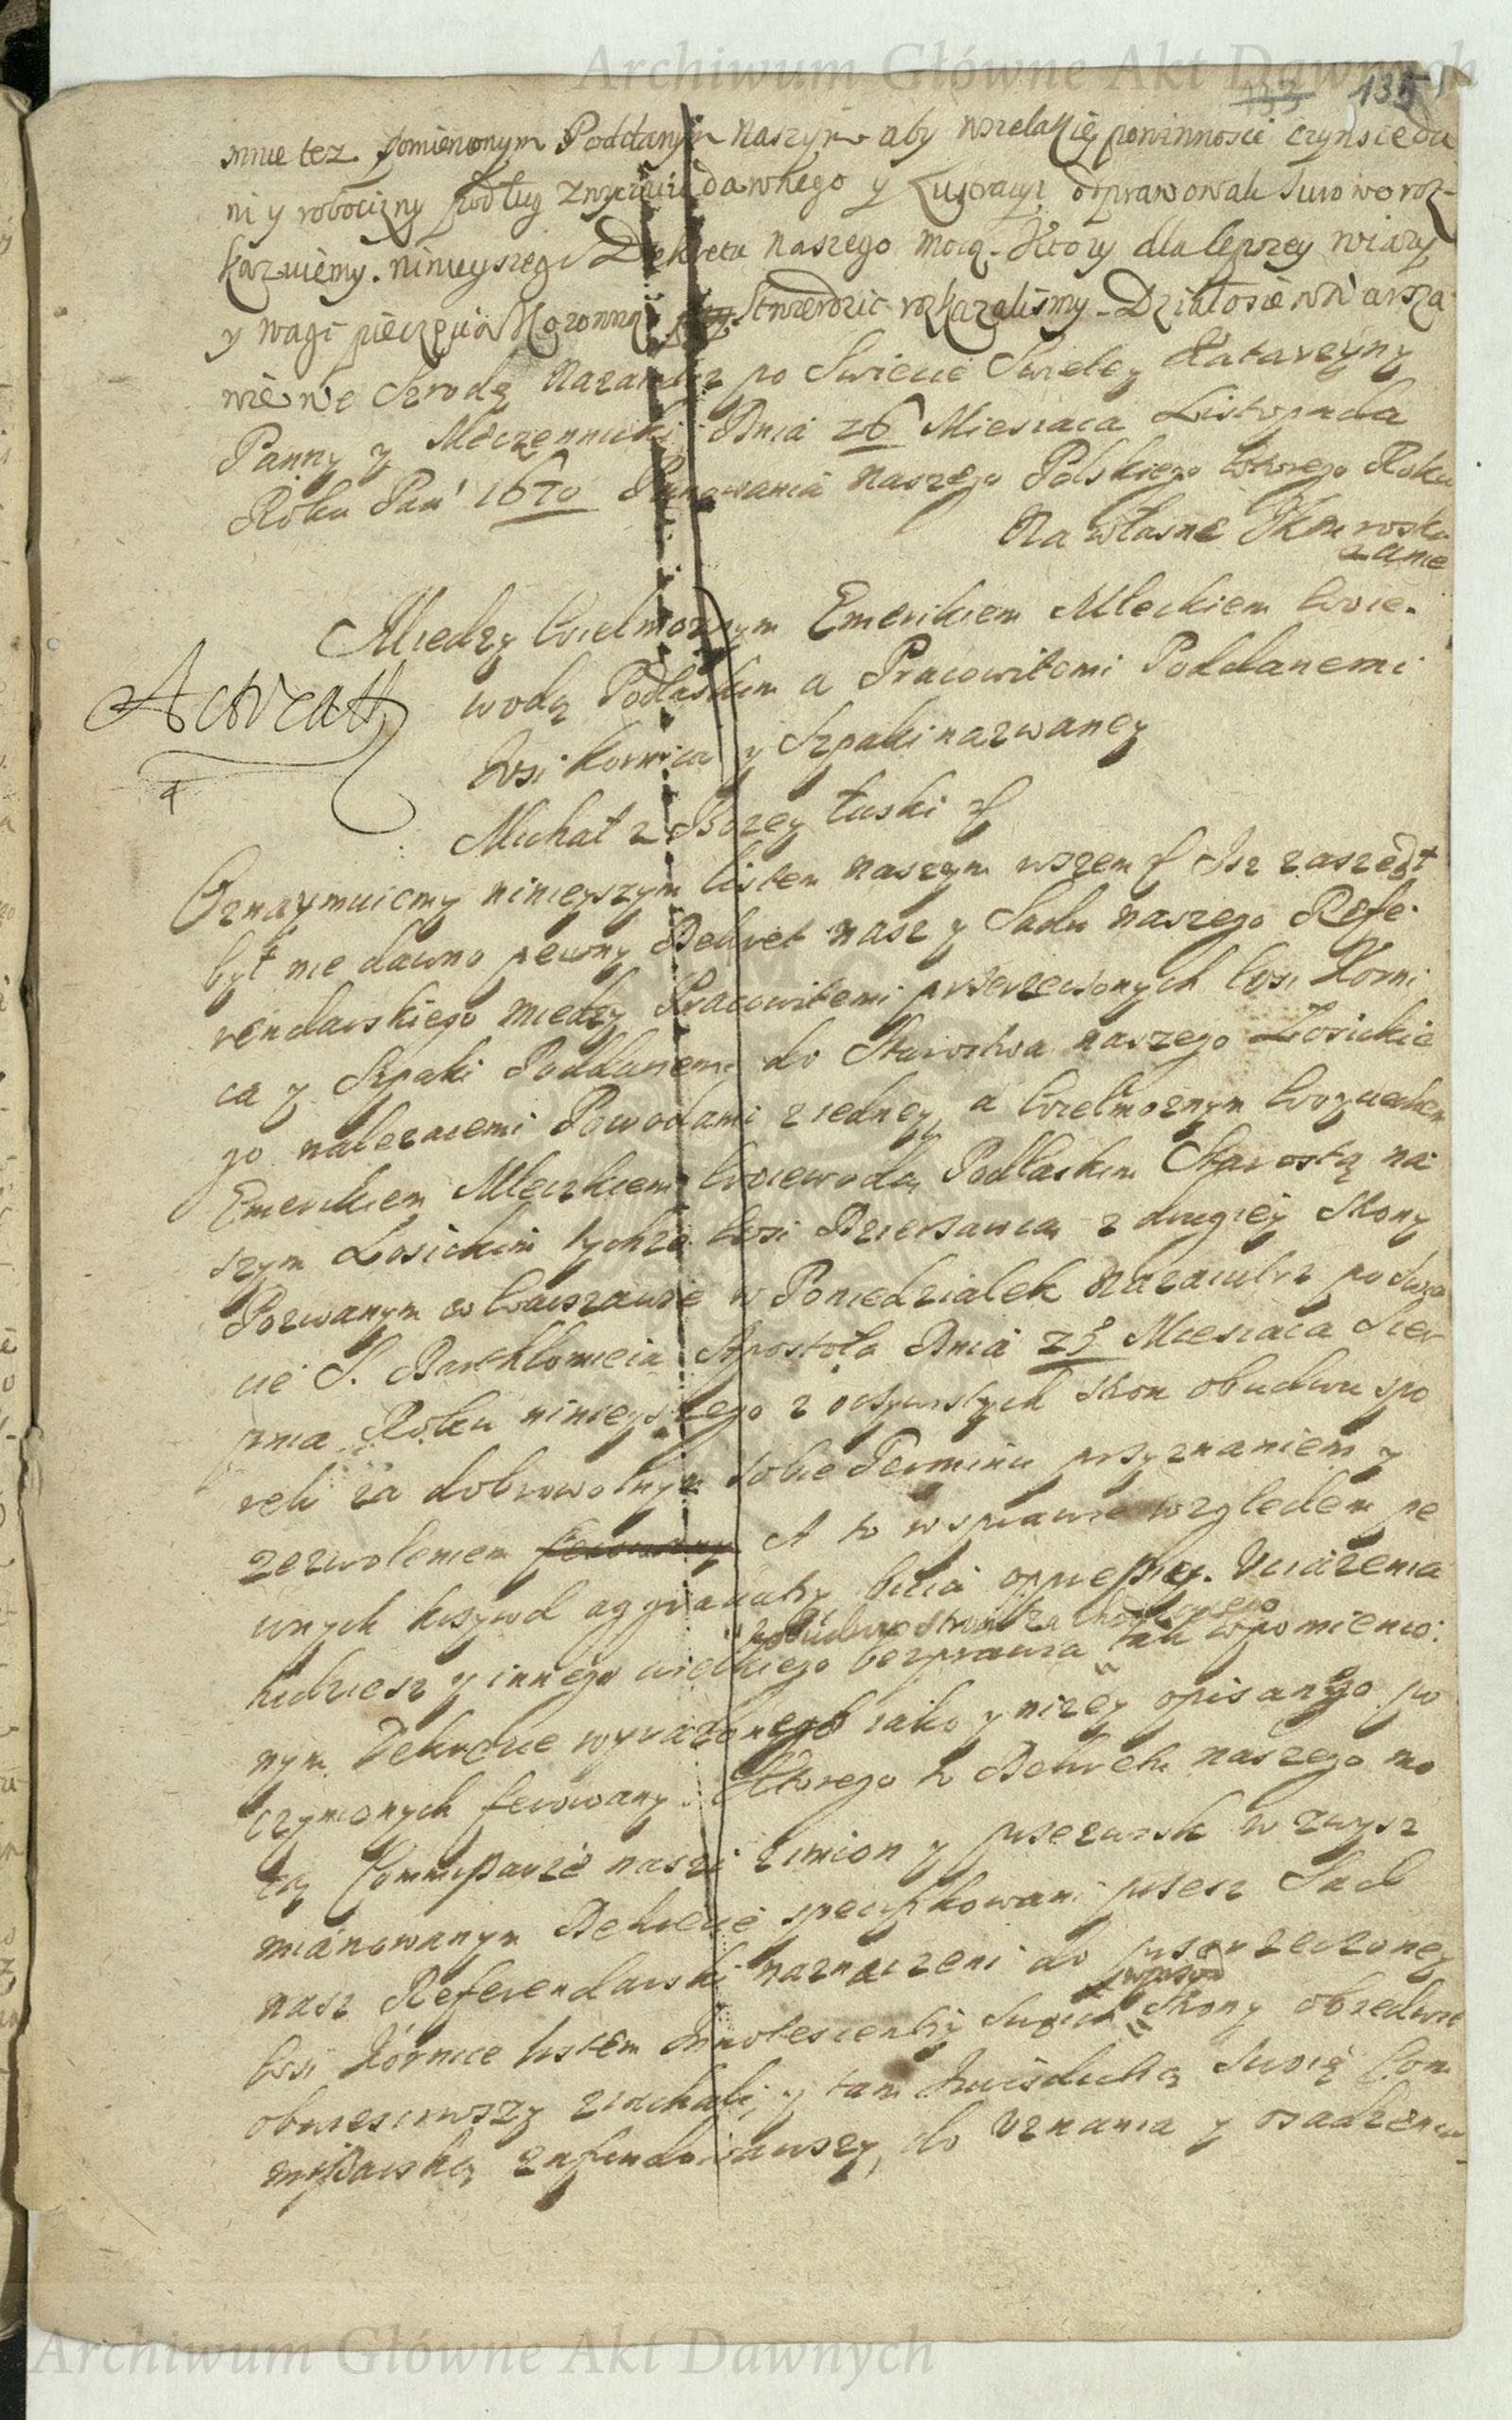 Archiwum Główne Akt Dawnych
133 135
mnie tez pomienionym Poddanym Naszym aby wszelakię powinnosci czynsze da
ni y robocizny podług zwyczaiu dawnego y odprawowali surowo roz-
kazuięmy. ninieyszego Dekretu naszego mocą. Ktory dla lepszey wiary
y wagi pieczęcią Koronną Stwierdzic rozkazalismy. Działo się w Warsza
wie we Szrodę Nazaiutrz po Swięcie Swiętey Katarzyny
Panny y Męczenniczki Dnia 26 Miesiąca Listopada
Roku Pan' 1670 Panowania Naszego Polskiego wtorego Roku
Na własne JKM roska
zanie
Między Wielmoznym Emerikiem Mleckiem Woie-
wodą Podlaskim a Pracowitemi Poddanemi
Wsi Kornica y Szpaki nazwaney
Michał z Bozey Łaski
Oznaymuiemy ninieyszym listem naszym wszem Isz zaszedł
był nie dawno pewny Dekret nasz y Sadu naszego Refe-
rendarskiego między Pracowitemi przerzeczonych Wsi Korni
ca y Szpaki Poddanemi do Starostwa naszego Łosickie
go nalezacemi Powodami z iedney, a Wielmoznym
Emerikiem Mleczkiem Woiewodą Podlaskim Starostą na
szym Łosickim tychze Wsi Dzierzawcą z drugiey strony
Pozwanym w Warszawie w Poniedziałek Nazaiutrz po Swię
cie S. Barthłomieia Apostoła Dnia 25 Miesiaca Sier
pnia Roku ninieyszego z oczywistych stron obudwu spo
rek za dobrowolnym sobie Terminu przyznaniem y
zezwoleniem A to w sprawie wzgledem pe
wnych krzywd aggrauaty, bicia oppressiey. Uciązenia
z obudwu stron
tudziesz y innego wielkiego bezprawia tak wpomienio:
nym Dekrecie wyrazonego iako y nizey opisanego po
czynionych ferowany. Ktorego to Dekretu naszego mo
cą Commissarze naszi z imion y przezwisk w zwysz
mianowanym Dekrecie specyfikowani przesz Sad
nasz Referendarski naznaczeni do przerzeczoney
wprzod
Wsi Kornice listem Innotescentiy Swoich Strony obiedwie
obwiesciwszy ziechali, y tam Jurisdictią Swoię Com
missarską zafundowawszy, do Uznania y osadzenia
Archiwum Główne Akt Dawnych